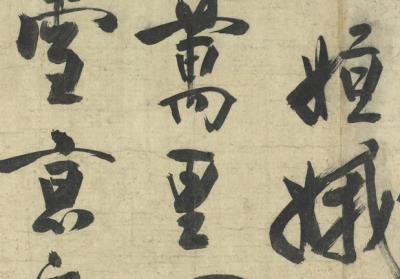 姮娥
萬里
雪